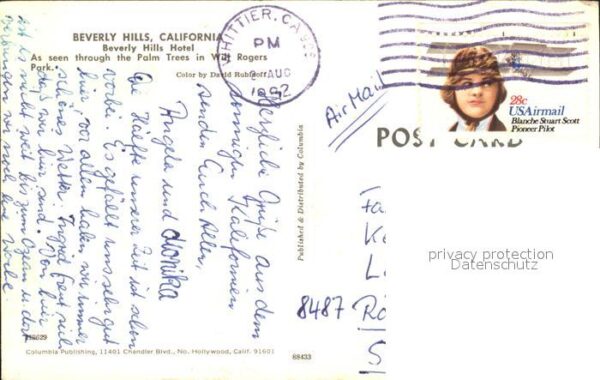 BEVERLY HILLS, CALIFORNIA
Beverly Hills Hotel
As seen through the Palm Trees in Will Rogers
Park.
Color by David
WHITTIER, CA
PM
AUG
1982
Air Mail
28c
USAirmail
Blanche Stuart Scott
Pioneer Pilot
POST CARD
Herzliche Grüße aus dem
sonnigen Kalifornien
senden Euch Allen,
Angela und Monika
Die Hälfte unserer Zeit ist schon
vorbei. Es gefällt uns sehr gut
hier, vor allem haben wir immer
schönes Wetter. Ingrid freut sich
daß wir hier sind. Von hier
ist es nicht weit bis zum Ozean u. dort
verbringen wir noch eine Woche.
Published & Distributed by Columbia
Fa
K
L
8487 Ro
S
privacy protection
Datenschutz
Columbia Publishing, 11401 Chandler Blvd., No. Hollywood, Calif. 91601
88433